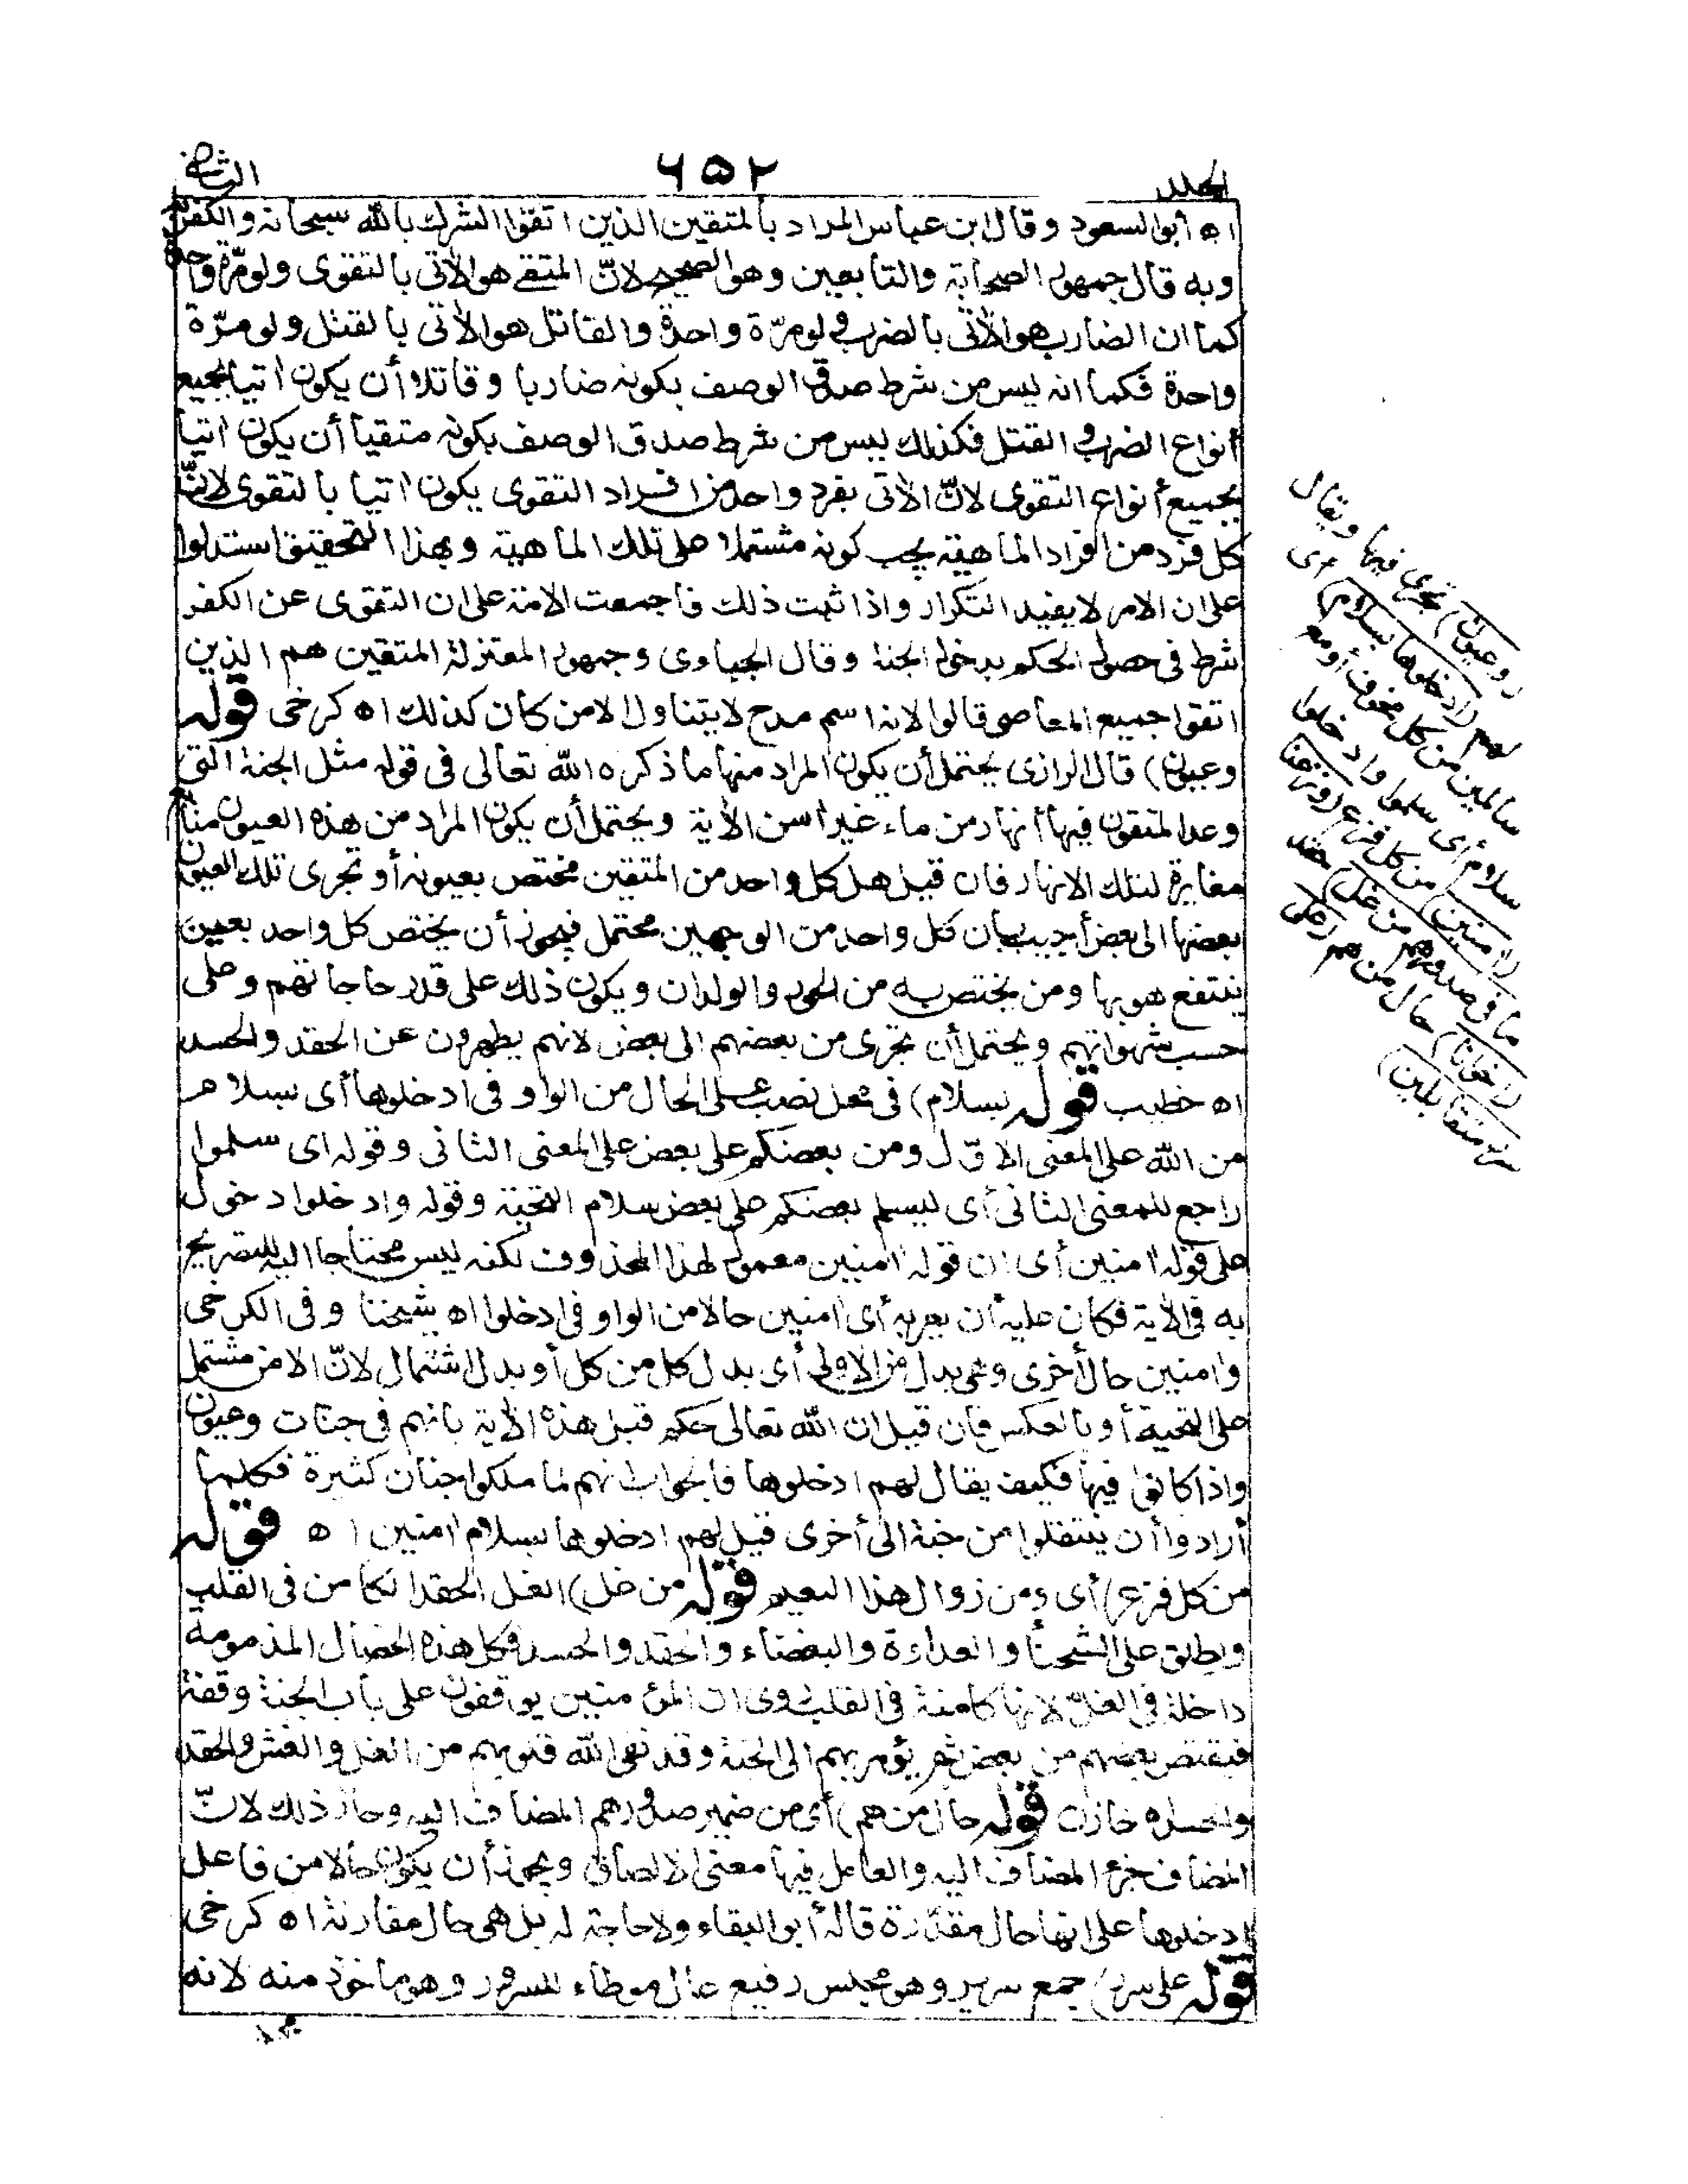 الجلد
٦٥٢
الثاني
اه أبو السعود وقال ابن عباس المراد بالمتقين الذين اتقوا الشرك بالله سبحانه والكفر به
وبه قال جمهور الصحابة والتابعين وهو الصحيح لانّ المتقي هو الآتي بالتقوى ولو مرّة واحدة
كما ان الضارب هو الآتي بالضرب ولو مرّة واحدة والقاتل هو الآتي بالقتل ولو مرّة
واحدة فكما انه ليس من شرط صدق الوصف بكونه ضاربا وقاتلا أن يكون اتيا بجميع
أنواع الضرب والقتل فكذلك ليس من شرط صدق الوصف بكونه متقيا أن يكون اتيا
بجميع أنواع التقوى لانّ الآتي بفرد واحد من افراد التقوى يكون اتيا بالتقوى لانّ
كل فرد من افراد الماهية يجب كونه مشتملا على تلك الماهية وبهذا التحقيق استدلوا
على ان الامر لا يفيد التكرار واذا ثبت ذلك فاجمعت الامة على ان التقوى عن الكفر
شرط في حصول الحكم بدخول الجنة وقال الجباوى وجمهور المعتزلة المتقين هم الذين
اتقوا جميع المعاصي قالوا لانه اسم مدح لا يتناول الا من كان كذلك اه كرخى قوله
وعيون) قال الرازى يحتمل أن يكون المراد منها ما ذكره الله تعالى في قوله مثل الجنة التي
وعد المتقون فيها أنهار من ماء غير اسن الآية ويحتمل أن يكون المراد من هذه العيون منابع
مغايرة لتلك الانهار فان قيل هل كل واحد من المتقين مختص بعيونه أو تجرى تلك العيون
بعضها الى بعض أجيب بان كل واحد من الوجهين محتمل فيجوز أن يختص كل واحد بعين
ينتفع هو بها ومن يختص به من الحور والولدان ويكون ذلك على قدر حاجاتهم وعلى
حسب شهواتهم ويحتمل أن تجرى من بعضهم الى بعض لانهم يطهرون عن الحقد والحسد
اه خطيب قوله بسلام) في محل نصب على الحال من الواو في ادخلوها أى بسلام
من الله على المعنى الاوّل ومن بعضكم على بعض على المعنى الثاني وقوله اى سلموا
راجع للمعنى الثاني أى ليسلم بعضكم على بعض سلام التحية وقوله وادخلوا دخول
على قوله امنين أى ان قوله امنين معمول لهذا المحذوف لكنه ليس محتاجا اليه للتصريح
به في الآية فكان عليه أن يعربه أى امنين حالا من الواو في ادخلوا اه شيخنا وفي الكرخى
وامنين حال أخرى وهي بدل من الاولى أى بدل كل من كل أو بدل اشتمال لانّ الامن مشتمل
على التحية أو بالعكس فان قيل ان الله تعالى حكم قبل هذه الآية بانهم في جنات وعيون
واذا كانوا فيها فكيف يقال لهم ادخلوها فالجواب انهم لما ملكوا جنات كثيرة فكلما
أرادوا أن ينتقلوا من جنة الى أخرى قيل لهم ادخلوها بسلام امنين اه قوله
من كل فزع) أى ومن زوال هذا النعيم قوله من غل) الغل الحقد الكامن في القلب
ويطلق على الشحنا والعداوة والبغضاء والحقد والحسد وكل هذه الخصال المذمومة
داخلة في الغلّ لانها كامنة في القلب روى ان المؤمنين يوقفون على باب الجنة وقفة
فيقتص بعضهم من بعض ثم يؤمر بهم الى الجنة وقد نقى الله قلوبهم من الغل والغش والحقد
والحسد اه خازن قوله حال من هم) أى من ضمير صدورهم المضاف اليه وجاز ذلك لانّ
المضاف جزء المضاف اليه والعامل فيها معنى الالصاق ويجوز أن يكون حالا من فاعل
ادخلوها على انها حال مقدّرة قاله أبو البقاء ولا حاجة له بل هي حال مقارنة اه كرخى
قوله على سرر) جمع سرير وهو مجلس رفيع عال موطاء للسرور وهو مأخوذ منه لانه
(وعيون) تجرى فيها ويقال
لهم (ادخلوها بسلام) اى
سالمين من كل مخوف أو مع
سلام أى سلموا وادخلوا
(امنين) من كل فزع (ونزعنا
ما في صدورهم من غل) حقد
(اخوانا) حال من هم (على
سرر متقابلين)